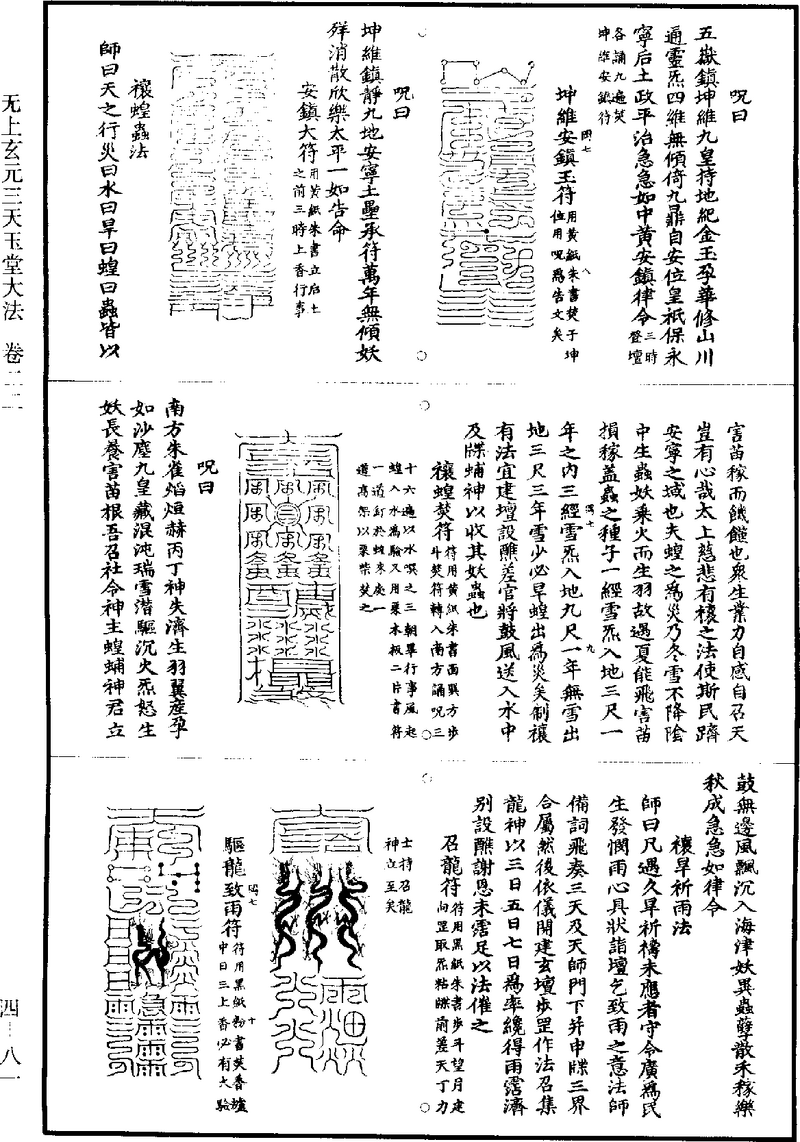 呪曰
五嶽鎮坤維九皇持地紀金玉孕華修山川
遍靈炁四維無傾倚九鼎自安位皇祇保永
寧后土政平治急急如中黃安鎮律令三時登壇
各誦九遍焚
坤維安鎮符
坤維安鎮玉符用黃紙朱書焚于坤位用呪為告文矣
呪曰
坤維鎮靜九地安寧土壘承符萬年無傾妖
殃消散欣樂太平一如告命
安鎮大符用黃紙朱書立后土之前三時上香行事
禳蝗蟲法
師曰天之行災曰水曰旱曰蝗曰蟲皆以
害苗稼而饑饉也衆生業力自感自召天
豈有心哉太上慈悲有禳之法使斯民躋
安寧之域也夫蝗之為災乃冬雪不降陰
中生蟲妖乘火而生羽故遇夏能飛害苗
損稼蓋蟲之種子一經雪炁入地三尺一
年之內三經雪炁入地九尺一年無雪出
地三尺三年雪少必旱蝗出為災矣制禳
有法宜建壇設醮差官將鼓風送入水中
及牒蜅神以收其妖蟲也
禳蝗焚符符用黃紙朱書面巽方步斗焚符轉入南方誦呪三
十六遍以水噀之三朝畢行事風起
蝗入水為驗又用棗木板二片書符
一道釘於蝗來處一
道高架以棗柴焚之
呪曰
南方朱雀焰烜赫丙丁神失濟生羽翼產孕
如沙塵九皇藏混沌瑞雪潛驅沉火炁怒生
妖長養害苗根吾召社令神主蝗蜅神君立
鼓無邊風飄沉入海津妖異蟲孽散禾稼樂
秋成急急如律令
禳旱祈雨法
師曰凡遇久旱祈禱未應者守令廣為民
生發憫雨心具狀詣壇乞致雨之意法師
備詞飛奏三天及天師門下并申牒三界
合屬然後依儀開建玄壇步罡作法召集
龍神以三日五日七日為率纔得雨霑濟
別設醮謝恩未霑足以法催之
召龍符符用黑紙朱書步斗望月建向罡取炁粘牒前差天丁力
士持召龍
神立至矣
驅龍致雨符符用黑紙粉書焚香爐中日三上香必有大驗
无上玄元三天玉堂大法　卷二二
四—八一